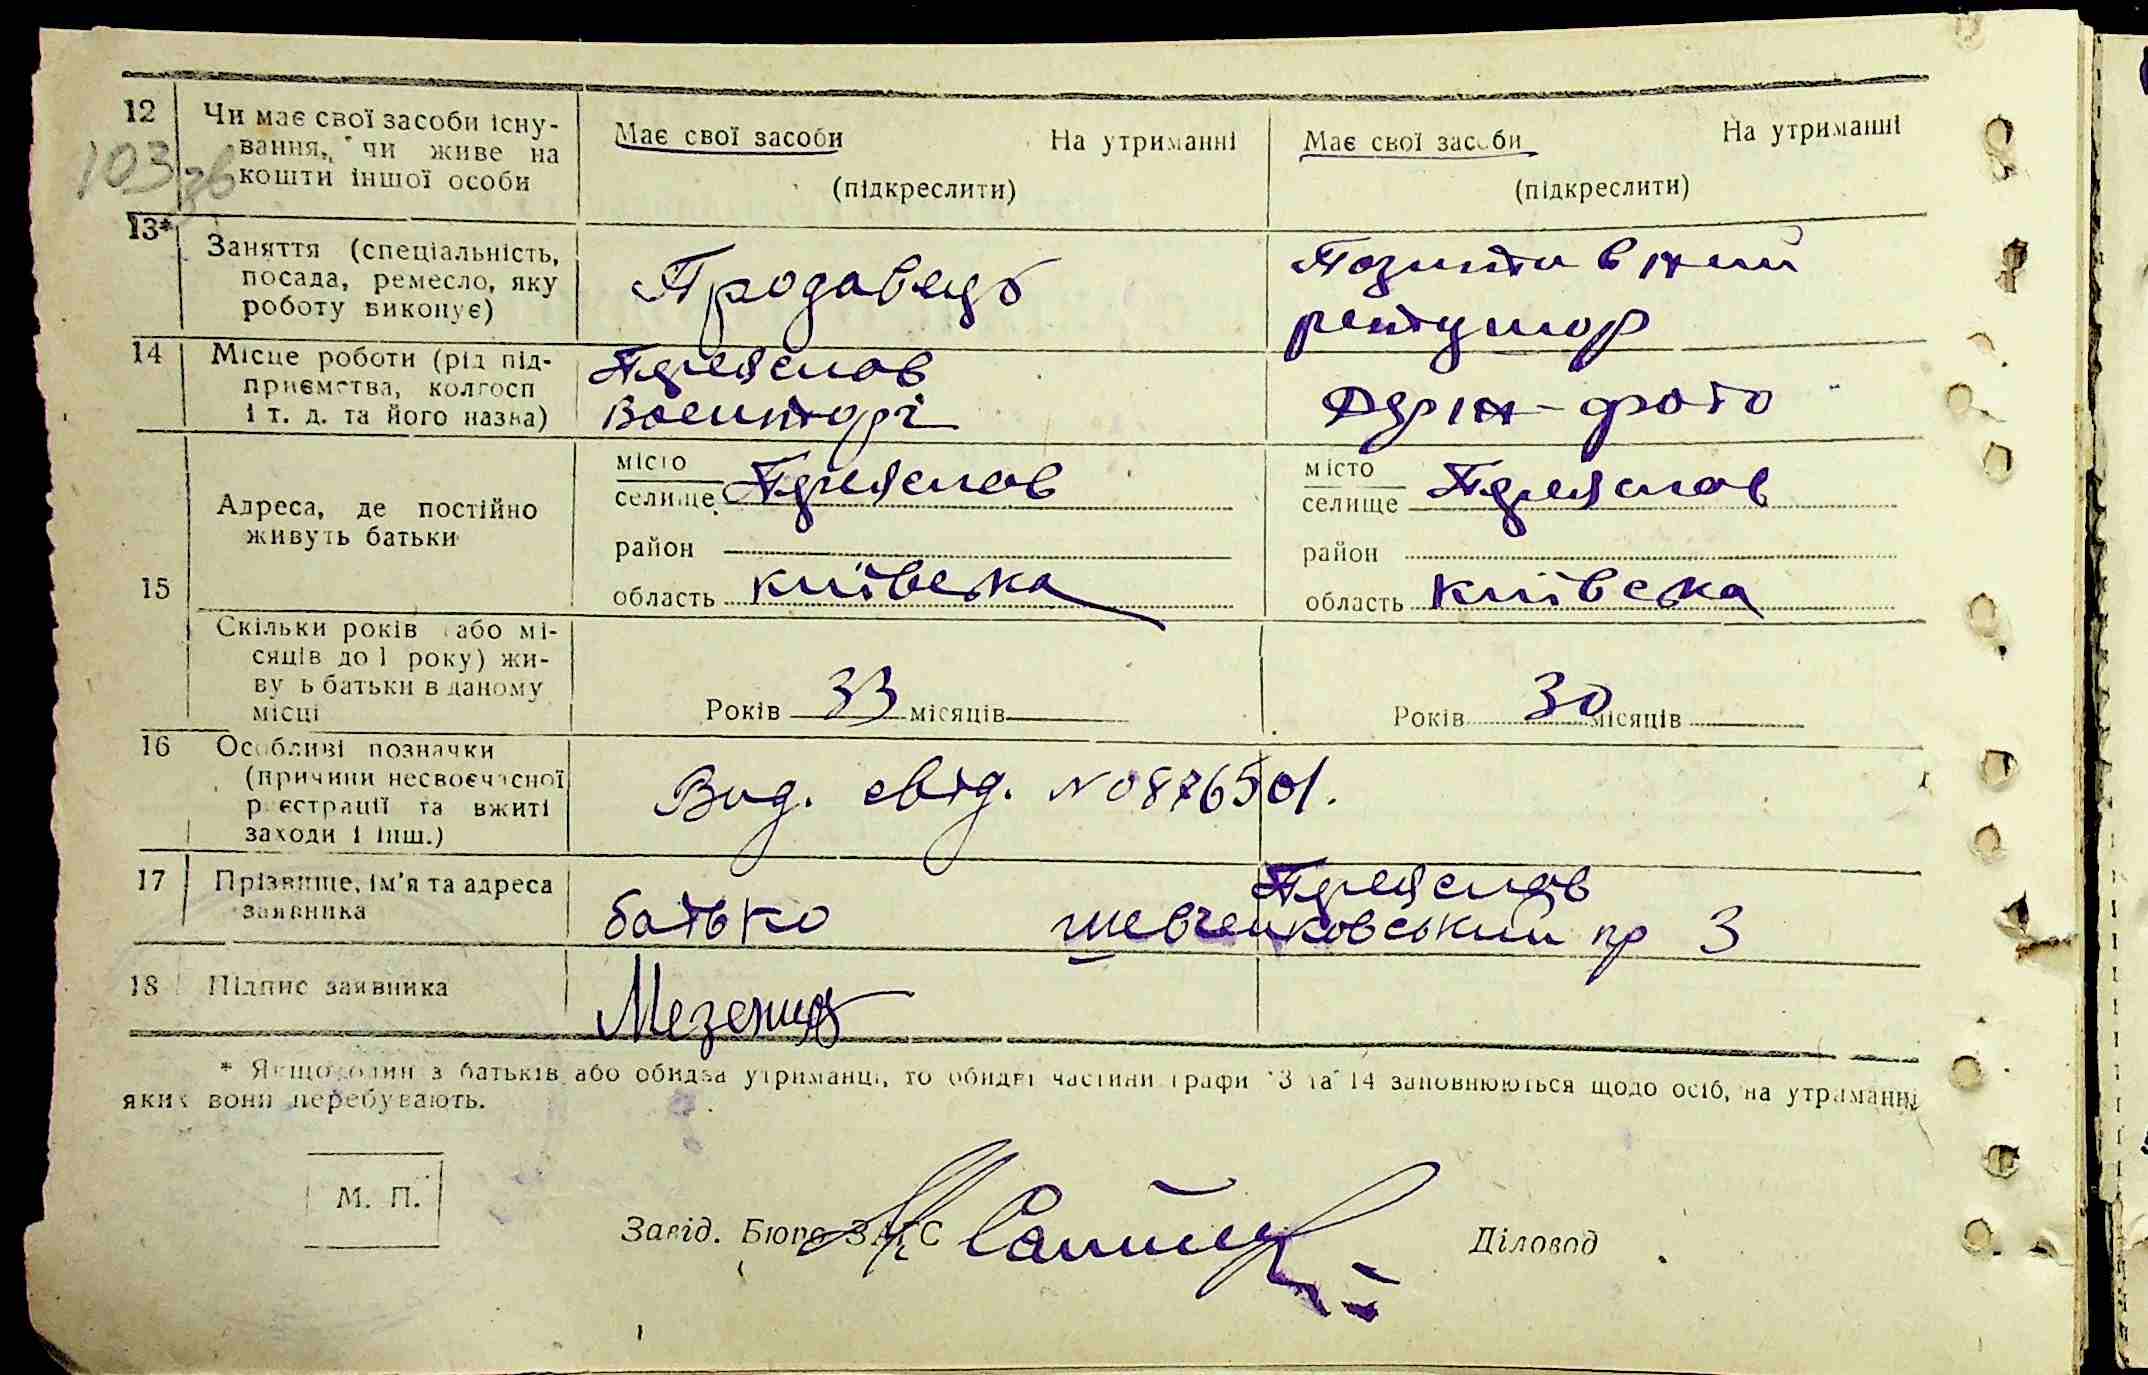 12 Чи має свої засоби існу-
вання, чи живе на
кошти іншої особи
Має свої засоби На утриманні
(підкреслити)
Має свої засоби На утриманні
(підкреслити)
103 зв
13* Заняття (спеціальність,
посада, ремесло, яку
роботу виконує)
Продавець
Позитивний
ретушор
14 Місце роботи (рід під-
приємства, колгосп
і т. д. та його назва)
Переяслов
Воєнторг
Держ-фото
15 Адреса, де постійно
живуть батьки
місто
селище Переяслов
район
область київська
місто
селище Переяслов
район
область Київська
Скільки років (або мі-
сяців до 1 року) жи-
вуть батьки в даному
місці
Років 33 місяців
Років 30 місяців
16 Особливі позначки
(причини несвоєчасної
реєстрації та вжиті
заходи і інш.)
Вид. свід. № 0876501.
17 Прізвище, ім'я та адреса
заявника
Переяслов
батько шевченковський пр 3
18 Підпис заявника
* Якщо один з батьків або обидва утриманці, то обидві частини графи 13 та 14 заповнюються щодо осіб, на утриманні
яких вони перебувають.
М. П.
Завід. Бюро ЗАГС Діловод